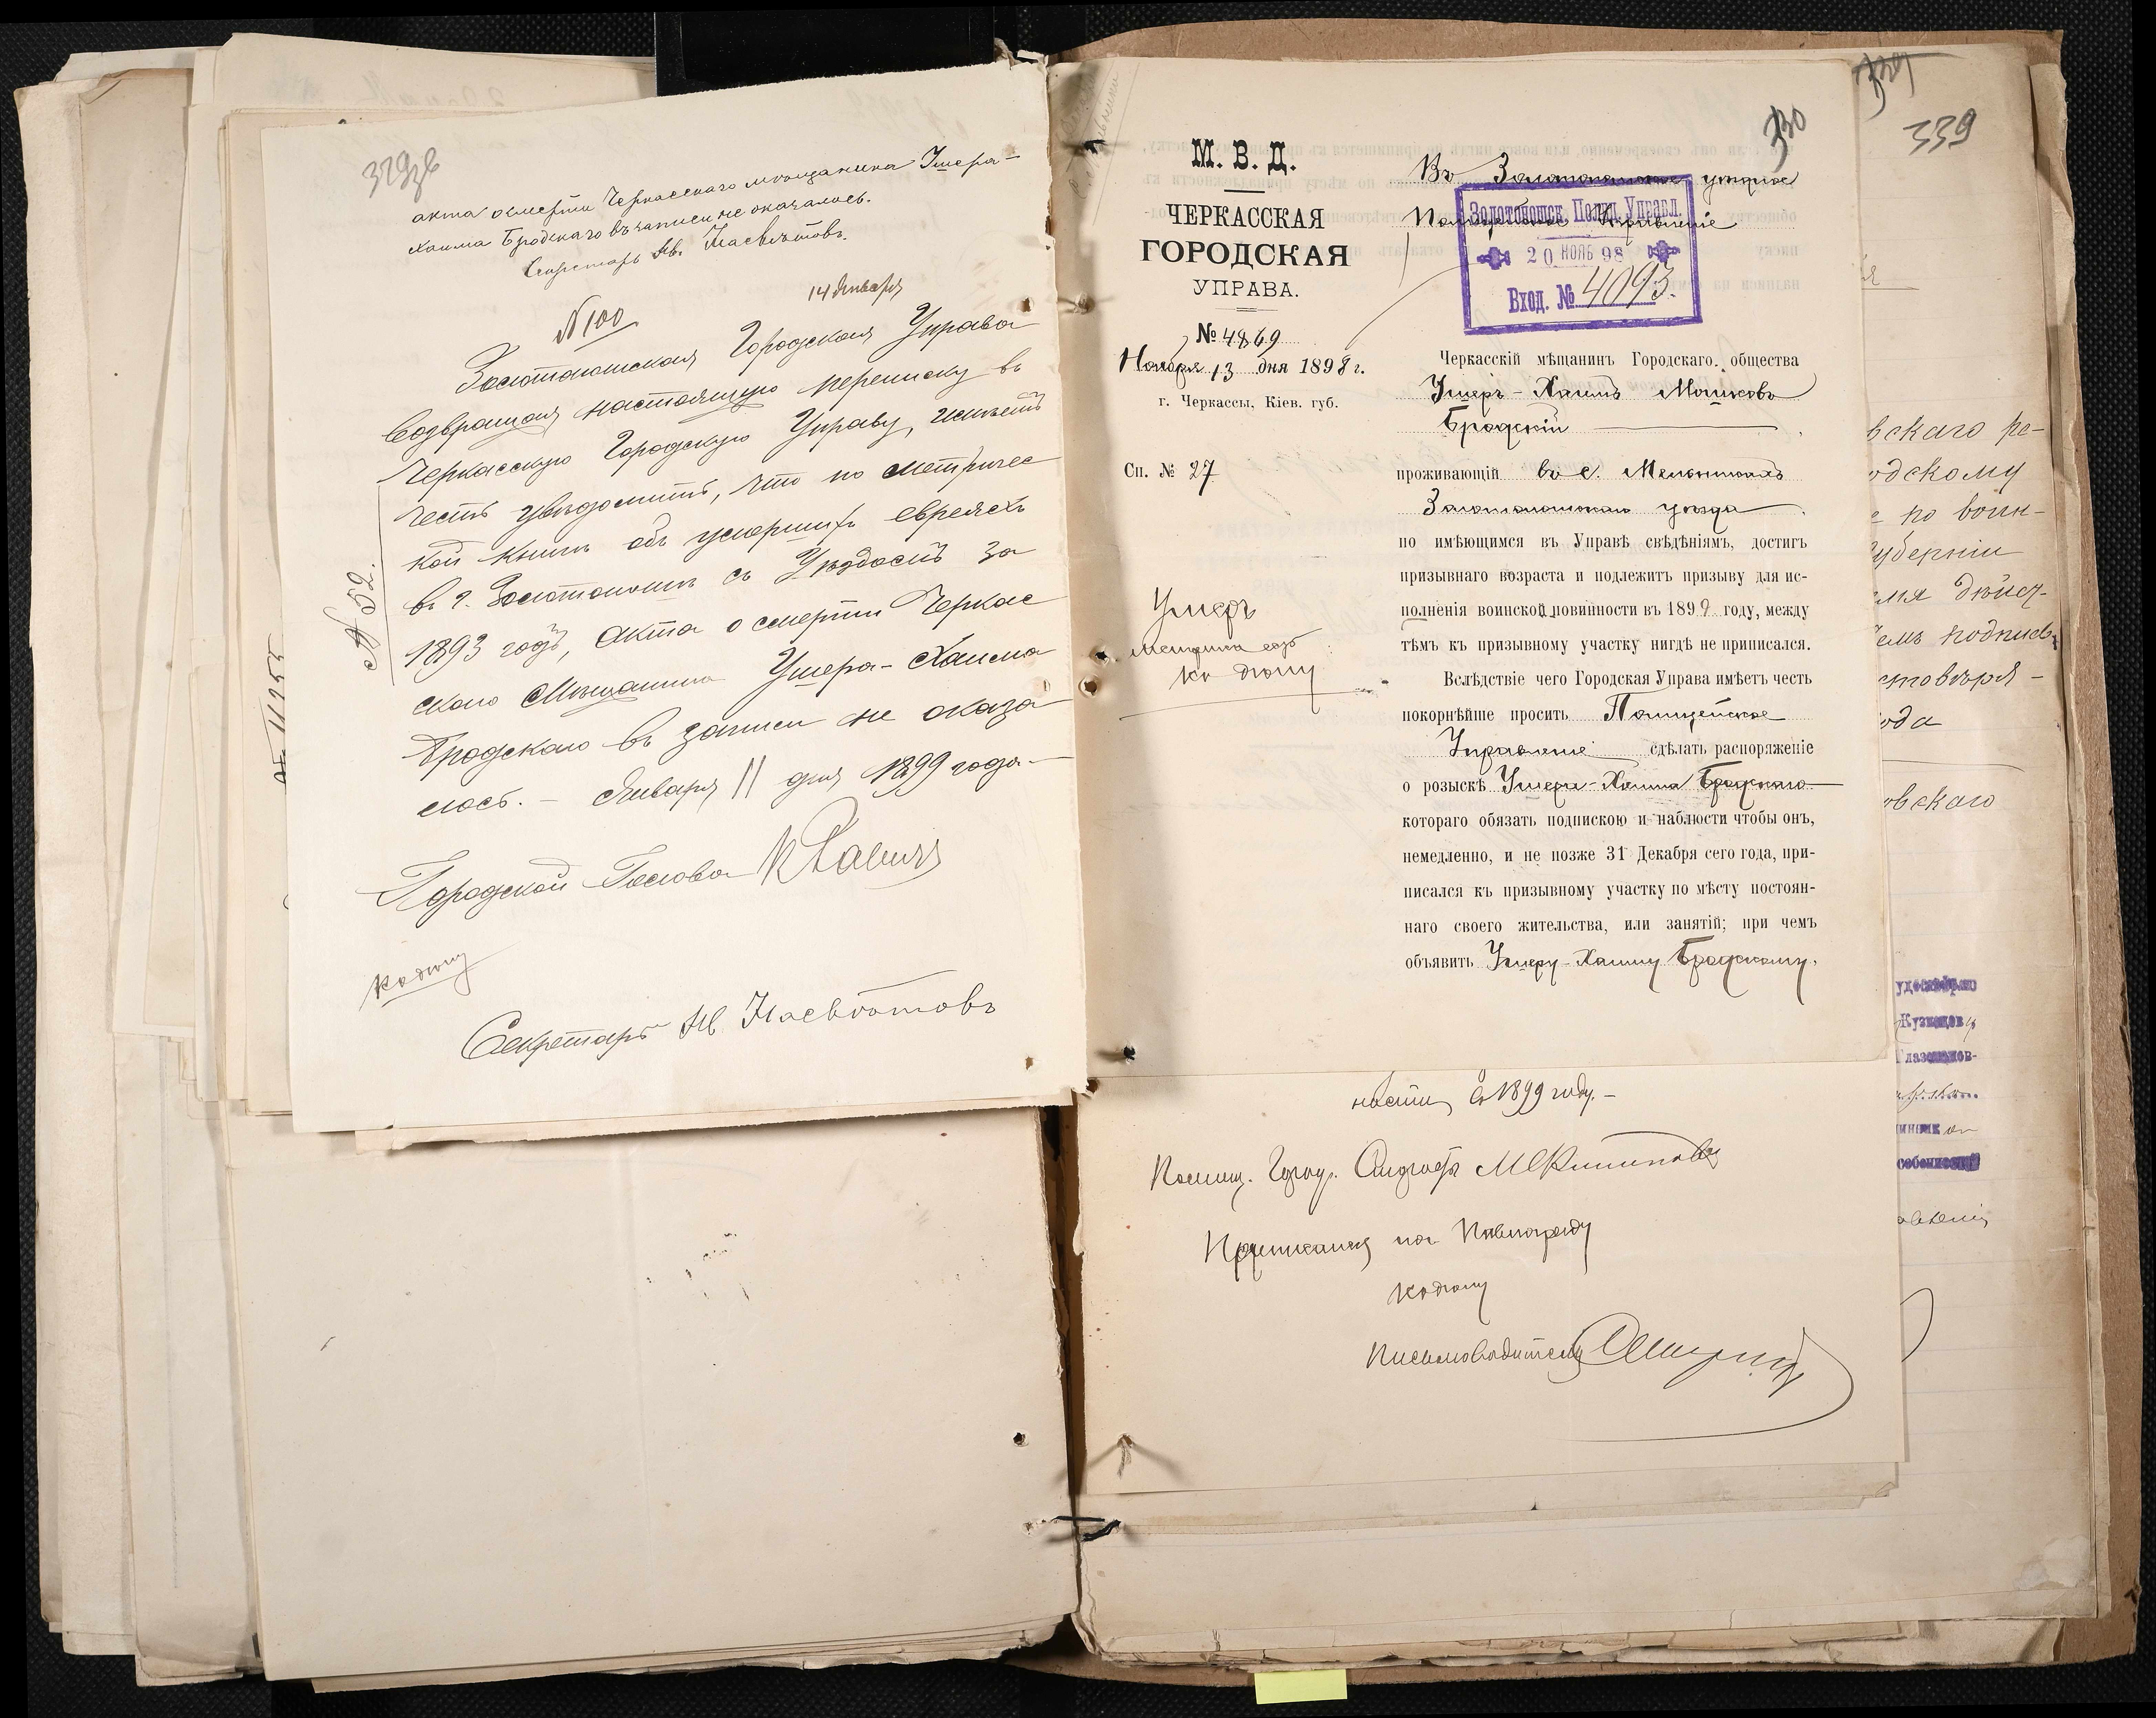 329об
акта о смерти Черкасскаго мѣщанина Ушера-
Хаима Бродскаго въ записи не оказалось.
Секретарь Ив. Насвѣтовъ.
14 Января
№ 100
Золотоношская Городская Управа
возвращая настоящую переписку въ
Черкасскую Городскую Управу, имѣетъ
честь увѣдомить, что по метричес
кой книгѣ объ умершихъ евреяхъ
въ г. Золотоношѣ съ Уѣздомъ за
1893 годъ, акта о смерти Черкас
скаго Мѣщанина Ушера-Хаима
Бродскаго въ записи не оказа
лось. – Января 11 дня 1899 года. –
№ 52.
Городской Голова
къ дѣлу
Секретарь Ив. Насвѣтовъ
330
М. В. Д.
ЧЕРКАССКАЯ
ГОРОДСКАЯ
УПРАВА.
№ 4869
Ноября 13 дня 1898 г.
г. Черкассы, Кіев. губ.
Сп. № 27
Умеръ
къ дѣлу
Въ Золотоношское уѣздное
Полицейское Управленіе
Золотоношск. Полиц. Управл.
20 НОЯБ 98
Вход. № 4093.
Черкасскій мѣщанинъ Городскаго общества
Ушеръ-Хаимъ Мошковъ
Бродскій
проживающій въ с. Мельникахъ
Золотоношскаго уѣзда
по имѣющимся въ Управѣ свѣдѣніямъ, достигъ
призывнаго возраста и подлежитъ призыву для ис-
полненія воинской повинности въ 1899 году, между
тѣмъ къ призывному участку нигдѣ не приписался.
Вслѣдствіе чего Городская Управа имѣетъ честь
покорнѣйше просить Полицейское
Управленіе сдѣлать распоряженіе
о розыскѣ Ушера-Хаима Бродскаго
котораго обязать подпискою и наблюсти чтобы онъ,
немедленно, и не позже 31 Декабря сего года, при-
писался къ призывному участку по мѣсту постоян-
наго своего жительства, или занятій; при чемъ
объявить Ушеру-Хаиму Бродскому,
ности въ 1899 году. –
Приписанъ по Павлограду
къ дѣлу
Письмоводитель
339
вскаго ре-
одскому
по воин-
губерніи
подпись
ода
овскаго